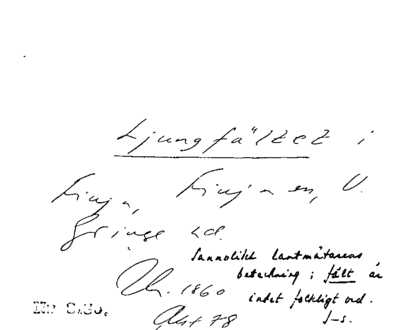 Ljungfältet i
Finja, Finja en, V.
Göinge hd.
Sannolikt lantmätarens
beteckning; fält är
intet folkligt ord.
J-s.
1860
Akt 78